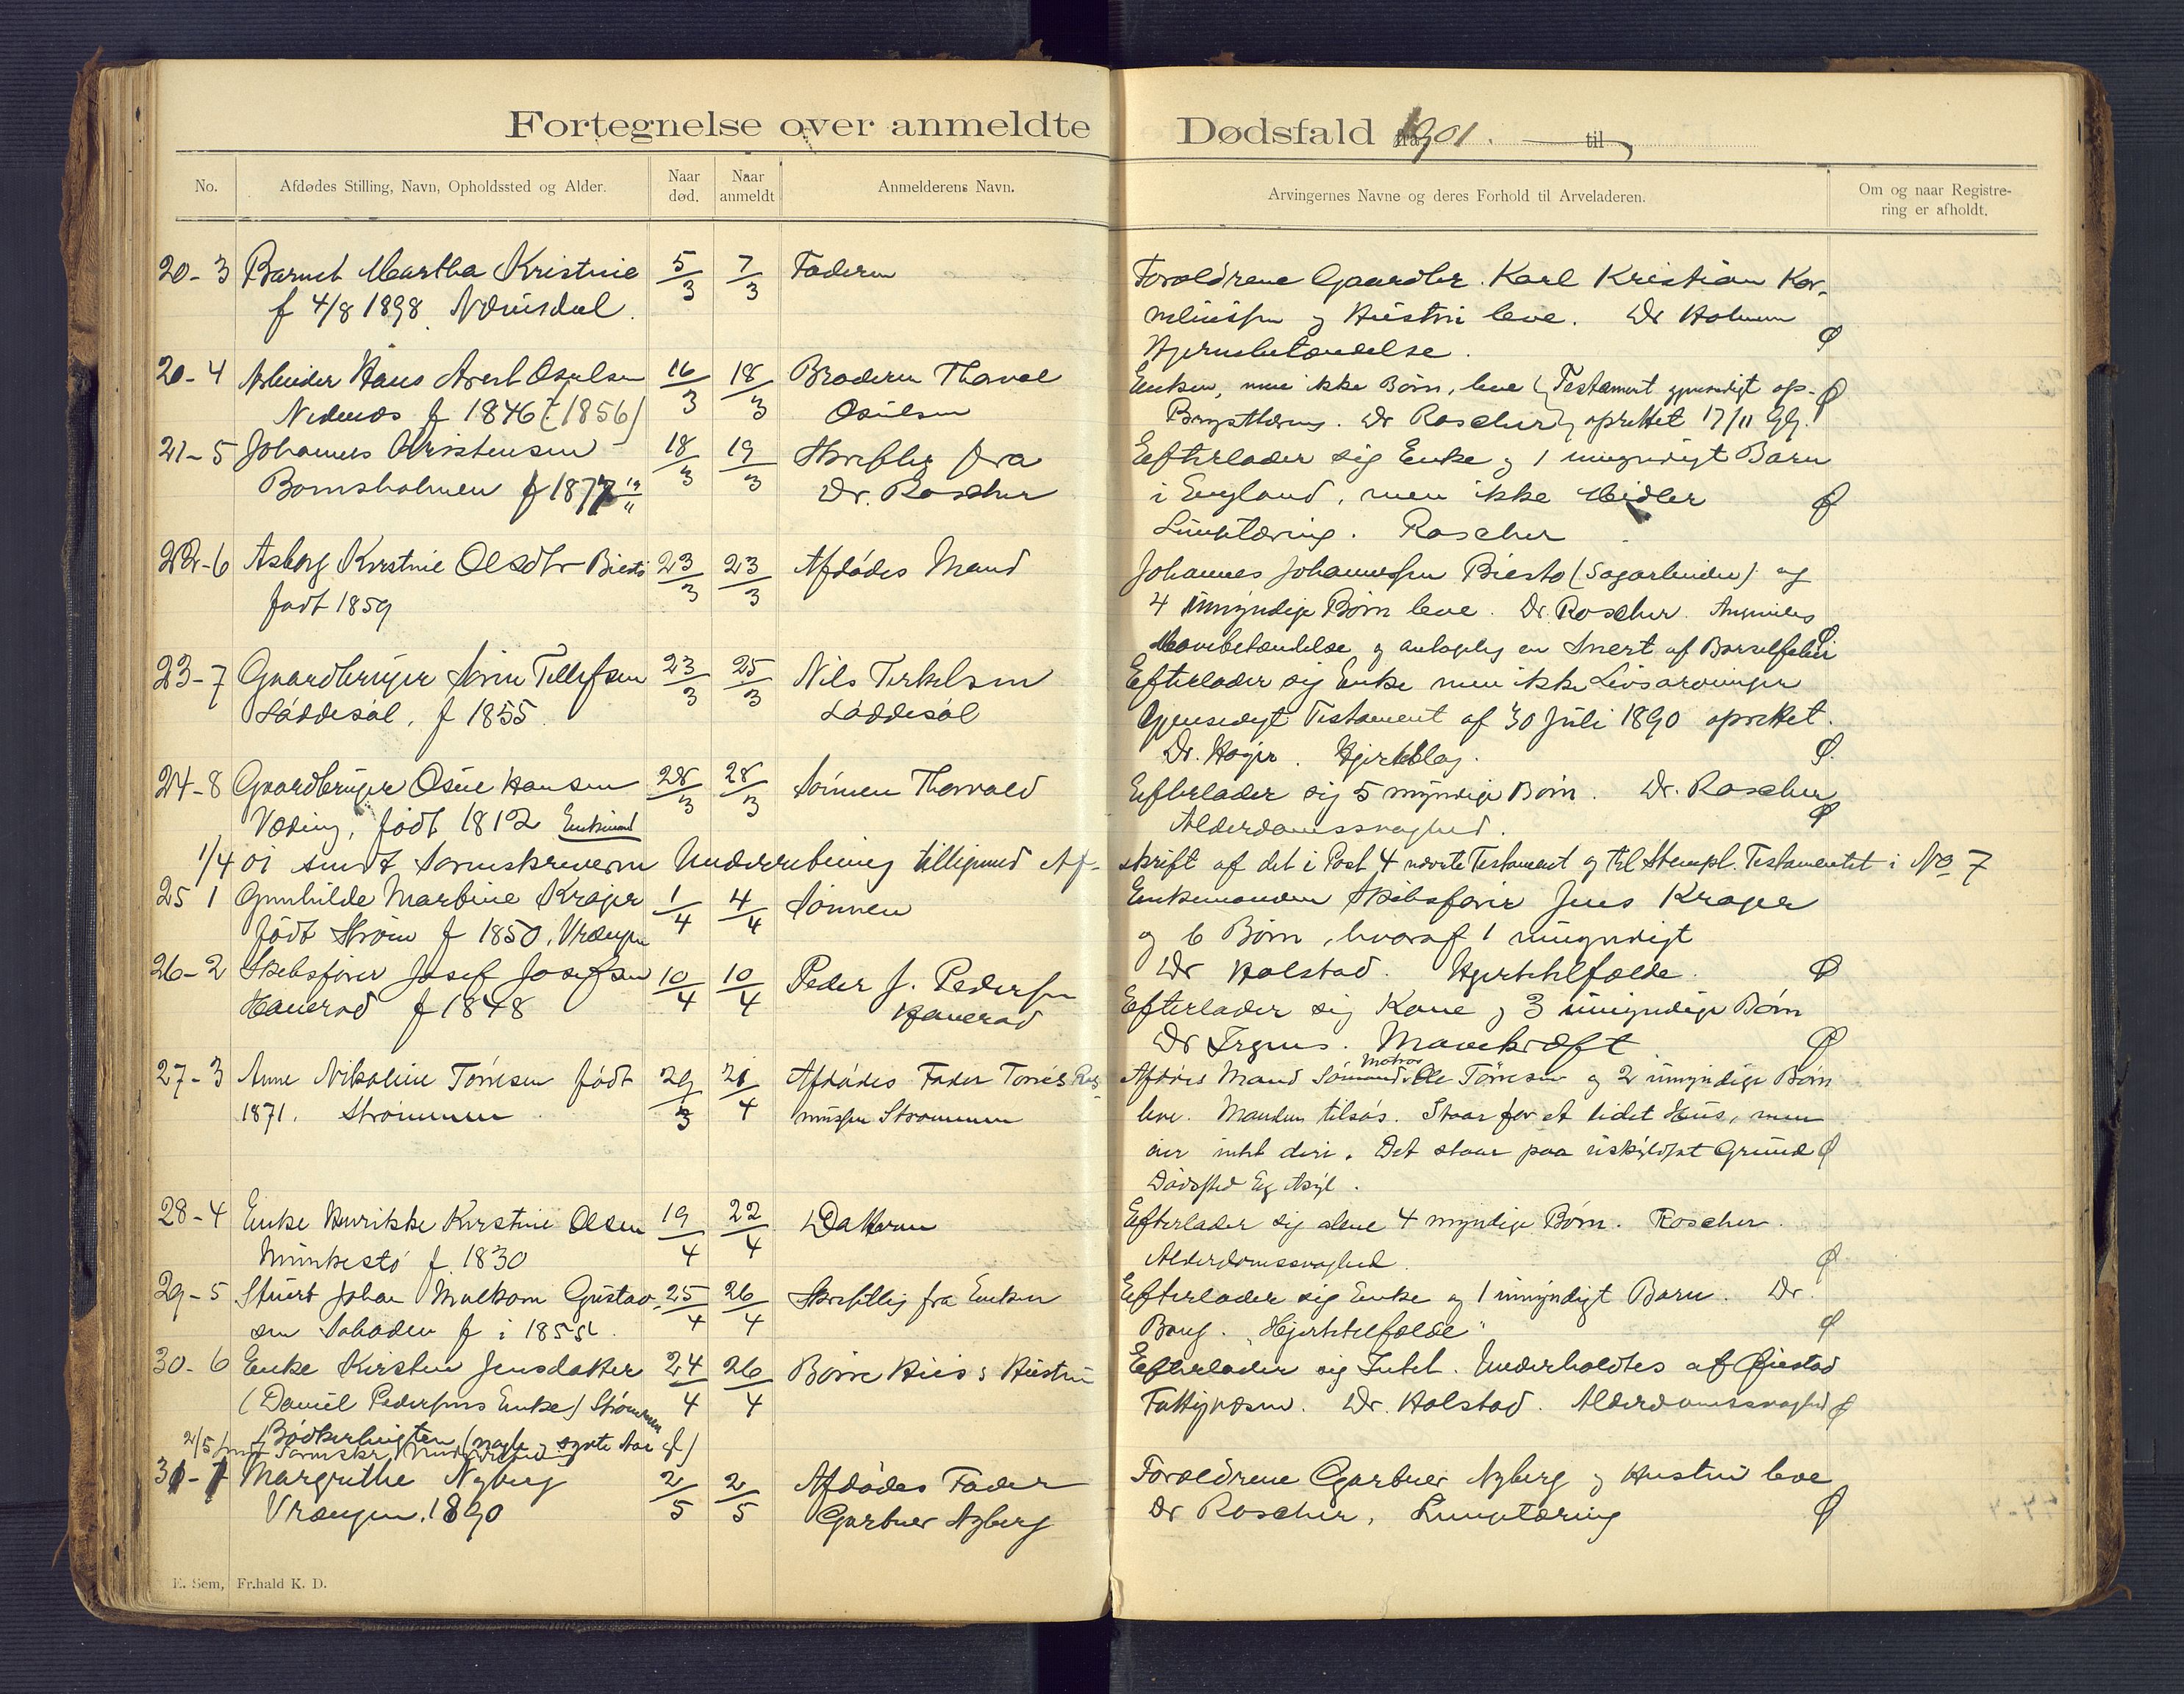 Fortegnelse over anmeldte Dødsfald 1901. til
No.
Afdødes Stilling, Navn, Opholdssted og Alder.
Naar død.
Naar anmeldt
Anmelderens Navn.
Arvingernes Navne og deres Forhold til Arveladeren.
Om og naar Registrering er afholdt.
20-3 Barnet Martha Kristine 5/3 7/3 Faderen
f 4/8 1898
Forældrene Gaardbr. Karl Kristian Kor-
neliussen og Hustru leve. Dr Holmen
Hjernebetændelse. Ø
20-4 Arbeider Hans Arent Osulsen 16/3 18/3 Broderen Thorval
Nedenæs f 1846 (1856) Osulsen
Enken, men ikke Børn, leve (Testament gjensidigt op- Ø
Brysttæring. Dr Roscher oprettet 17/11 99.
21-5 Johannes Kristensen 18/3 19/3 Skriftlig fra
Bomsholmen f 1877 Dr. Roscher
Efterlader sig Enke og 1 umyndigt Barn
i England, men ikke Midler Ø
Lungetæring. Roscher
22-6 Asborg Kirstine Olsdtr 23/3 23/3 Afdødes Mand
født 1859
Johannes Johannessen Biestø (Sagarbeider) og
4 umyndige Børn leve. Dr. Roscher.
Mavebetændelse og antagelig en Snert af Barselfeber Ø
23-7 Gaardbruger Søren Tellefsen 23/3 25/3 Nils Terkelsen
Løddesøl, f 1855. Løddesøl
Efterlader sig Enke men ikke Livsarvinger
Gjensidigt Testament af 30 Juli 1890 oprettet.
Dr. Høyer. Hjerteslag. Ø.
24-8 Gaardbruger Osul Hansen 28/3 28/3 Sønnen Thorvald
Væding, født 1812 Enkemand
Efterlader sig 5 myndige Børn. Dr. Roscher
Alderdomssvaghed. Ø
1/4 01 sendt Sorenskriveren Underretning tilligemed Af- skrift af det i Post 4 nævnte Testament og til Stempl. Testamentet i No 7
25 1 Gunhilde Martine Krøger 1/4 4/4 Sønnen
født Strøm f 1850, Vrængen
Enkemanden Skibsfører Jens Krøger
og 6 Børn, hvoraf 1 umyndigt
Dr Holstad. Hjertetilfælde. Ø
26-2 Skibsfører Josef Josefsen 10/4 10/4 Peder J. Pedersen
Haverad f 1848 Haverad
Efterlader sig Kone og 3 umyndige Børn
Dr Irgens. Mavekræft Ø
27-3 Anne Nikoline Tørresen født 29/3 21/4 Afdødes Fader Torres Ras-
1871. Strømmen mussen Strømmen
Afdødes Mand Sømand Matros Ole Tørresen og 2 umyndige Børn
leve. Manden tilsøs. Staar for et lidet Hus, men
eier intet deri. Det staar paa uskyldsat Grund Ø
Dødsted Eg Asyl.
28-4 Enke Henrikke Kirstine Olsen 19/4 22/4 Datteren
Munkestø f. 1830
Efterlader sig alene 4 myndige Børn. Roscher.
Alderdomssvaghed. Ø
29-5 Stuert Johan Malkom Gustav- 25/4 26/4 Skriftlig fra Enken
sen f i 1855
Efterlader sig Enke og 1 umyndigt Barn. Dr.
Bang. "Hjertetilfælde" Ø
30-6 Enke Kirsten Jensdatter 24/4 26/4 Børre Hus's Hustru
(Daniel Pedersens Enke) Strømmen
Efterlader sig Intet. Underholdtes af Øiestad
Fattigvæsen. Dr. Holstad. Alderdomssvaghed Ø
2/5
31-7 Margrethe Nyberg 2/5 2/5 Afdødes Fader
Vrængen. 1890 Gartner Nyberg
Forældrene Gartner Nyberg og Hustru leve
Dr Roscher, Lungetæring Ø
E. Sem, Fr.hald K. D.